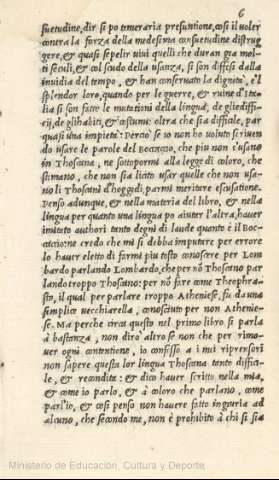 6
suetudine, dir si po temeraria presuntione, cosi il voler
contra la forza della medesima consuetudine distrug
gere, & quasi sepelir vivi quelli che duran gia mol
ti seculi, & col scudo della usanza, si son diffesi dalla
invidia del tempo, & han conservato la dignità, e'l
splendor loro, quando per le guerre, & ruine d'Ita
lia si son fatte le mutationi della lingua, de gliediffi
cij, de glihabiti, & costumi: oltre che sia difficile, par
quasi una impietà: Perciò se io non ho voluto scriven
do usare le parole del Boccaccio, che piu non s'usano
in Thoscana, ne sottopormi alla legge di coloro, che
stimano, che non sia licito usar quelle che non usa-
no li Thoscani d'hoggidi, parmi meritare escusatione.
Penso adunque, & nella materia del libro, & nella
lingua per quanto una lingua po aiutar l'altra, haver
imitato authori tanto degni di laude quanto è il Boc-
caccio: ne credo che mi si debba imputare per errore
lo haver eletto di farmi piu tosto conoscere per Lom
bardo parlando Lombardo, che per nō Thoscano par
lando troppo Thoscano: per nō fare come Theophra-
sto, il qual per parlare troppo Atheniese, fu da una
simplice vecchiarella, conosciuto per non Athenie-
se. Ma perche circa questo nel primo libro si parla
à bastanza, non dirò altro se non che per rimo-
ver ogni contentione, io confesso a i miei riprensori
non sapere questa lor lingua Thoscana tanto diffici-
le, & recondita: & dico haver scritto nella mia,
& come io parlo, & à coloro che parlano, come
parl'io, & cosi penso non havere fatto ingiuria ad
alcuno, che secondo me, non è prohibito à chi si sia
Ministerio de Educación, Cultura y Deporte,